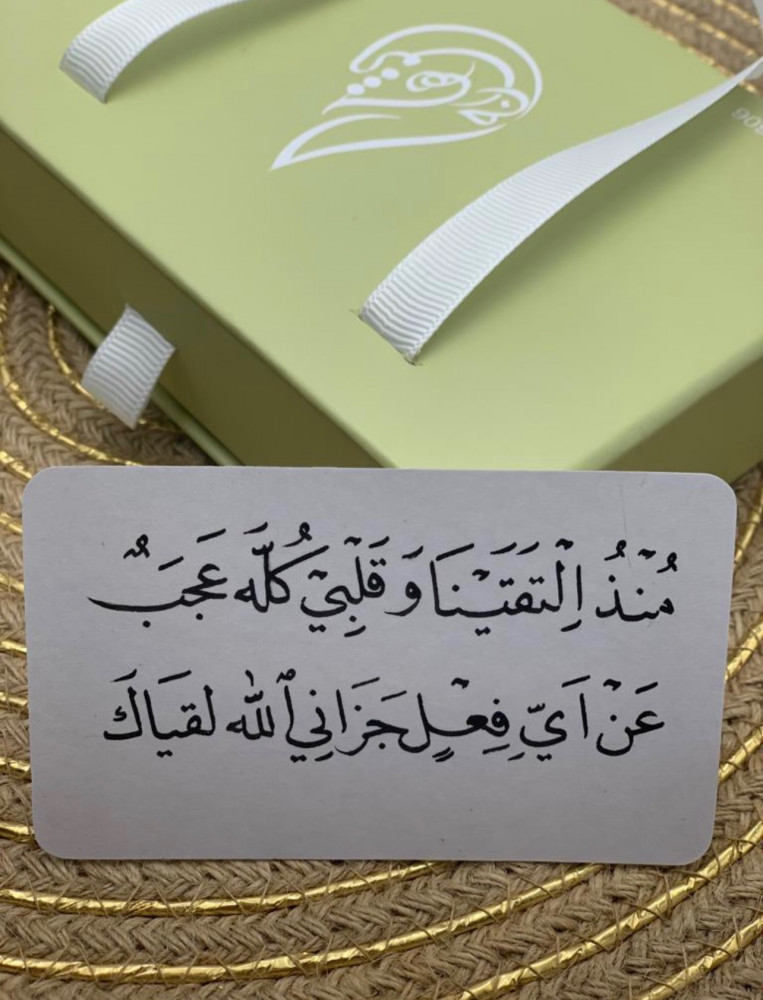 مُنْذُ اِلْتَقَيْنَا وَ قَلْبِيْ كُلَّه عَجَبٌ
عَنْ اَيِّ فِعْلٍ جَزَانِي ٱللّٰه لقيَاكَ